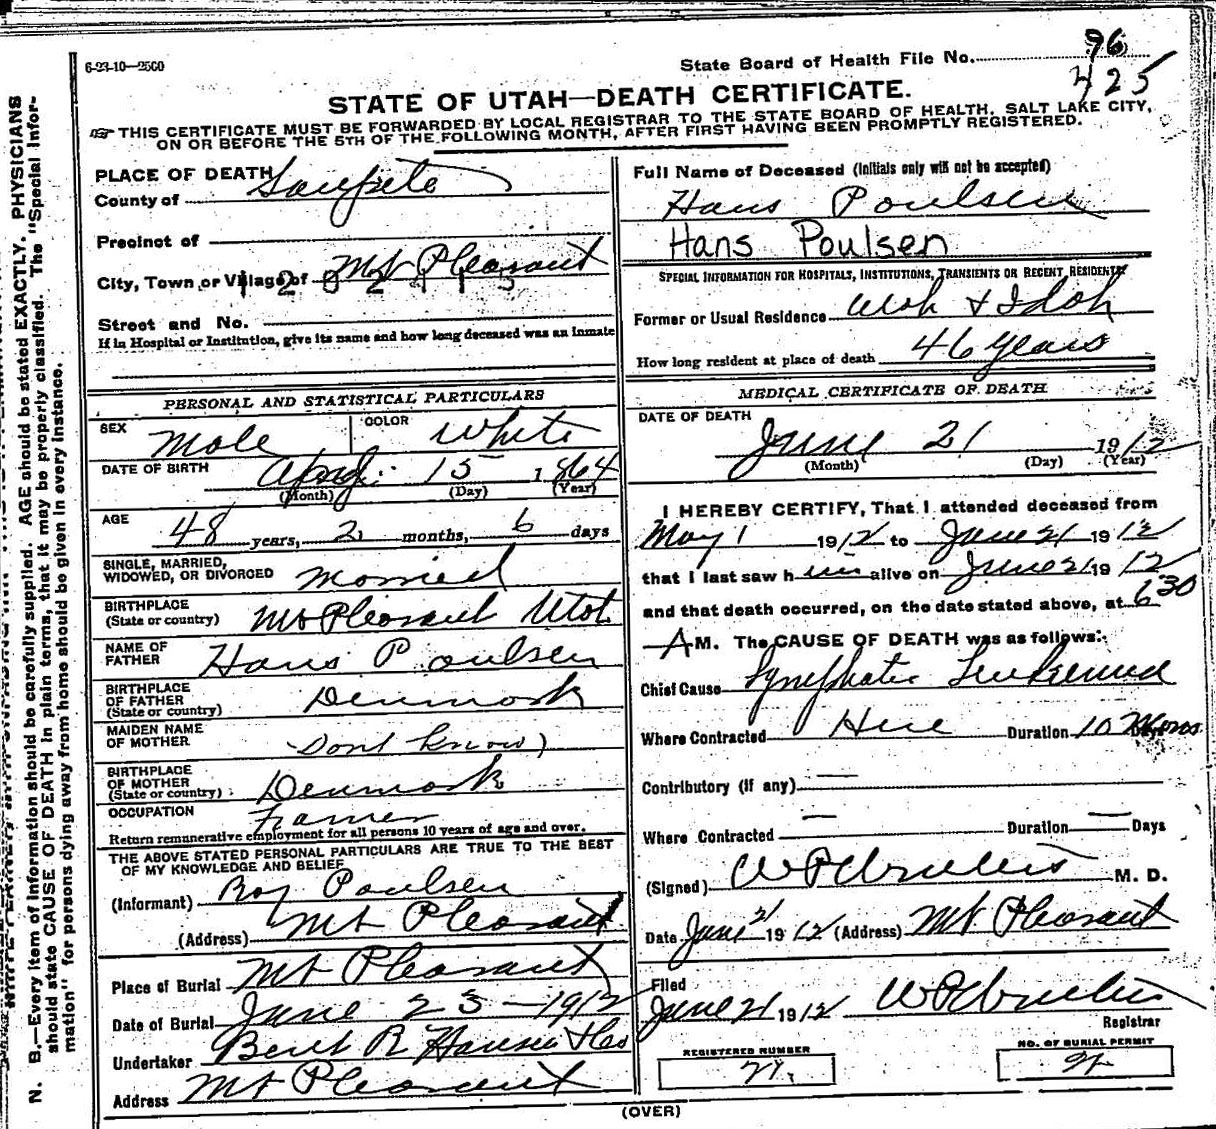 6-23-10—2500
State Board of Health File No. 96
425
STATE OF UTAH—DEATH CERTIFICATE.
THIS CERTIFICATE MUST BE FORWARDED BY LOCAL REGISTRAR TO THE STATE BOARD OF HEALTH, SALT LAKE CITY,
ON OR BEFORE THE 5TH OF THE FOLLOWING MONTH, AFTER FIRST HAVING BEEN PROMPTLY REGISTERED.
PLACE OF DEATH
County of Sanpete
Precinct of
City, Town or Village of Mt Pleasant
Street and No.
If in Hospital or Institution, give its name and how long deceased was an Inmate
PERSONAL AND STATISTICAL PARTICULARS
SEX Male COLOR White
DATE OF BIRTH April 15 1864
(Month) (Day) (Year)
AGE 48 years, 2 months, 6 days
SINGLE, MARRIED,
WIDOWED, OR DIVORCED Married
BIRTHPLACE
(State or country) Mt Pleasant Utah
NAME OF
FATHER Hans Poulsen
BIRTHPLACE
OF FATHER
(State or country) Denmark
MAIDEN NAME
OF MOTHER Dont know)
BIRTHPLACE
OF MOTHER
(State or country) Denmark
OCCUPATION Framer
Return remunerative employment for all persons 10 years of age and over.
THE ABOVE STATED PERSONAL PARTICULARS ARE TRUE TO THE BEST
OF MY KNOWLEDGE AND BELIEF
(Informant) Roy Poulsen
(Address) Mt Pleasant
Place of Burial Mt Pleasant
Date of Burial June 23—1912
Undertaker Bent R Hansen
Address Mt Pleasant
Full Name of Deceased (Initials only will not be accepted)
Hans Poulsen
Hans Poulsen
SPECIAL INFORMATION FOR HOSPITALS, INSTITUTIONS, TRANSIENTS OR RECENT RESIDENTS
Former or Usual Residence Utah & Idah
How long resident at place of death 46 years
MEDICAL CERTIFICATE OF DEATH
DATE OF DEATH
June 21 1912
(Month) (Day) (Year)
I HEREBY CERTIFY, That I attended deceased from
May 1 1912 to June 21 1912
that I last saw him alive on June 21 1912
and that death occurred, on the date stated above, at 6 30
A M. The CAUSE OF DEATH was as follows:
Chief Cause Lymphatic Leukemia
Where Contracted Here Duration 10
Contributory (if any) —
Where Contracted — Duration — Days
(Signed) M. D.
Date June 21 1912 (Address) Mt Pleasant
Filed
June 21 1912
Registrar
REGISTERED NUMBER
NO. OF BURIAL PERMIT
21.
(OVER)
N. B.—Every item of information should be carefully supplied. AGE should be stated EXACTLY. PHYSICIANS
should state CAUSE OF DEATH in plain terms, that it may be properly classified. The "Special Infor-
mation" for persons dying away from home should be given in every instance.